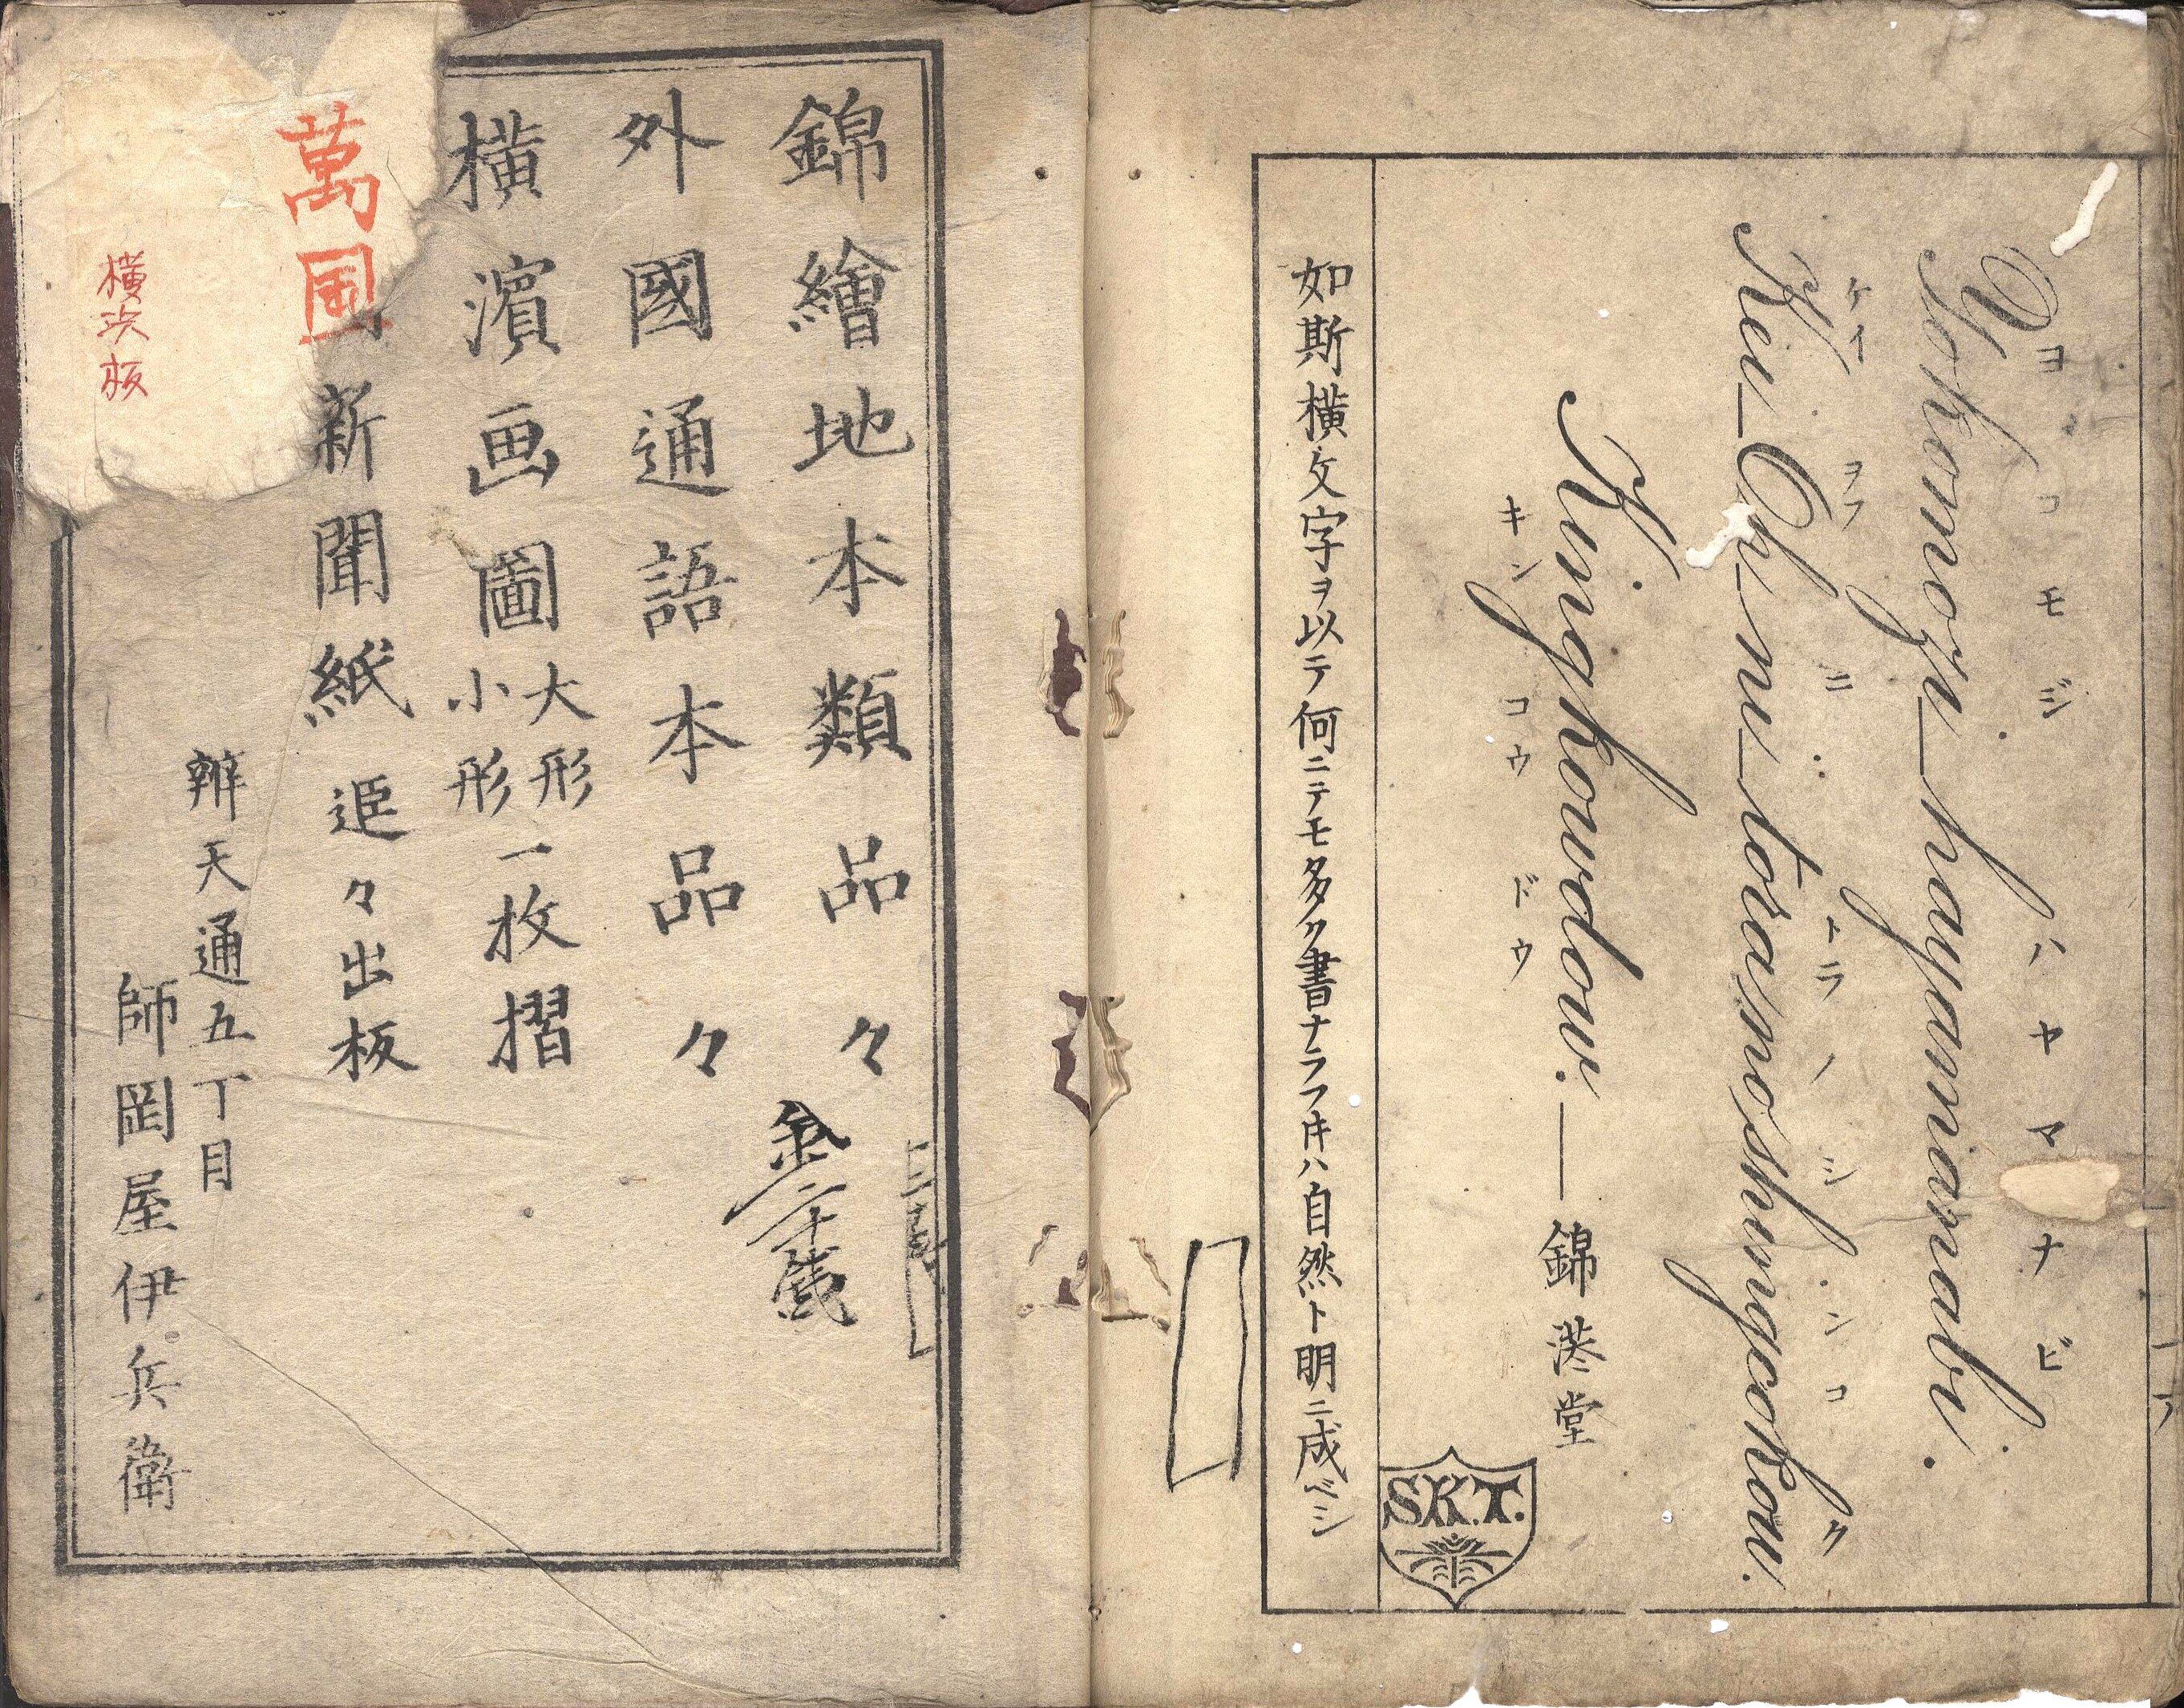 ヨコモジハヤマナビ
Yokomozi_hayamanabi.
ケイヲフニトラノシンコク
Kei_Oh_ni_toranoshingokou.
Kinghoudou.―錦港堂
キンコウドウ
S.K.T.
如斯横文字ヲ以テ何ニテモ多ク書ナラフ㐧ハ自然ト明ニ成ベシ
錦繪地本類品々
金二十銭
外國通語本品々
横濱画圖大形小形一枚摺
萬国新聞紙追々出板
辨天通五丁目
師岡屋伊兵衛
横浜板